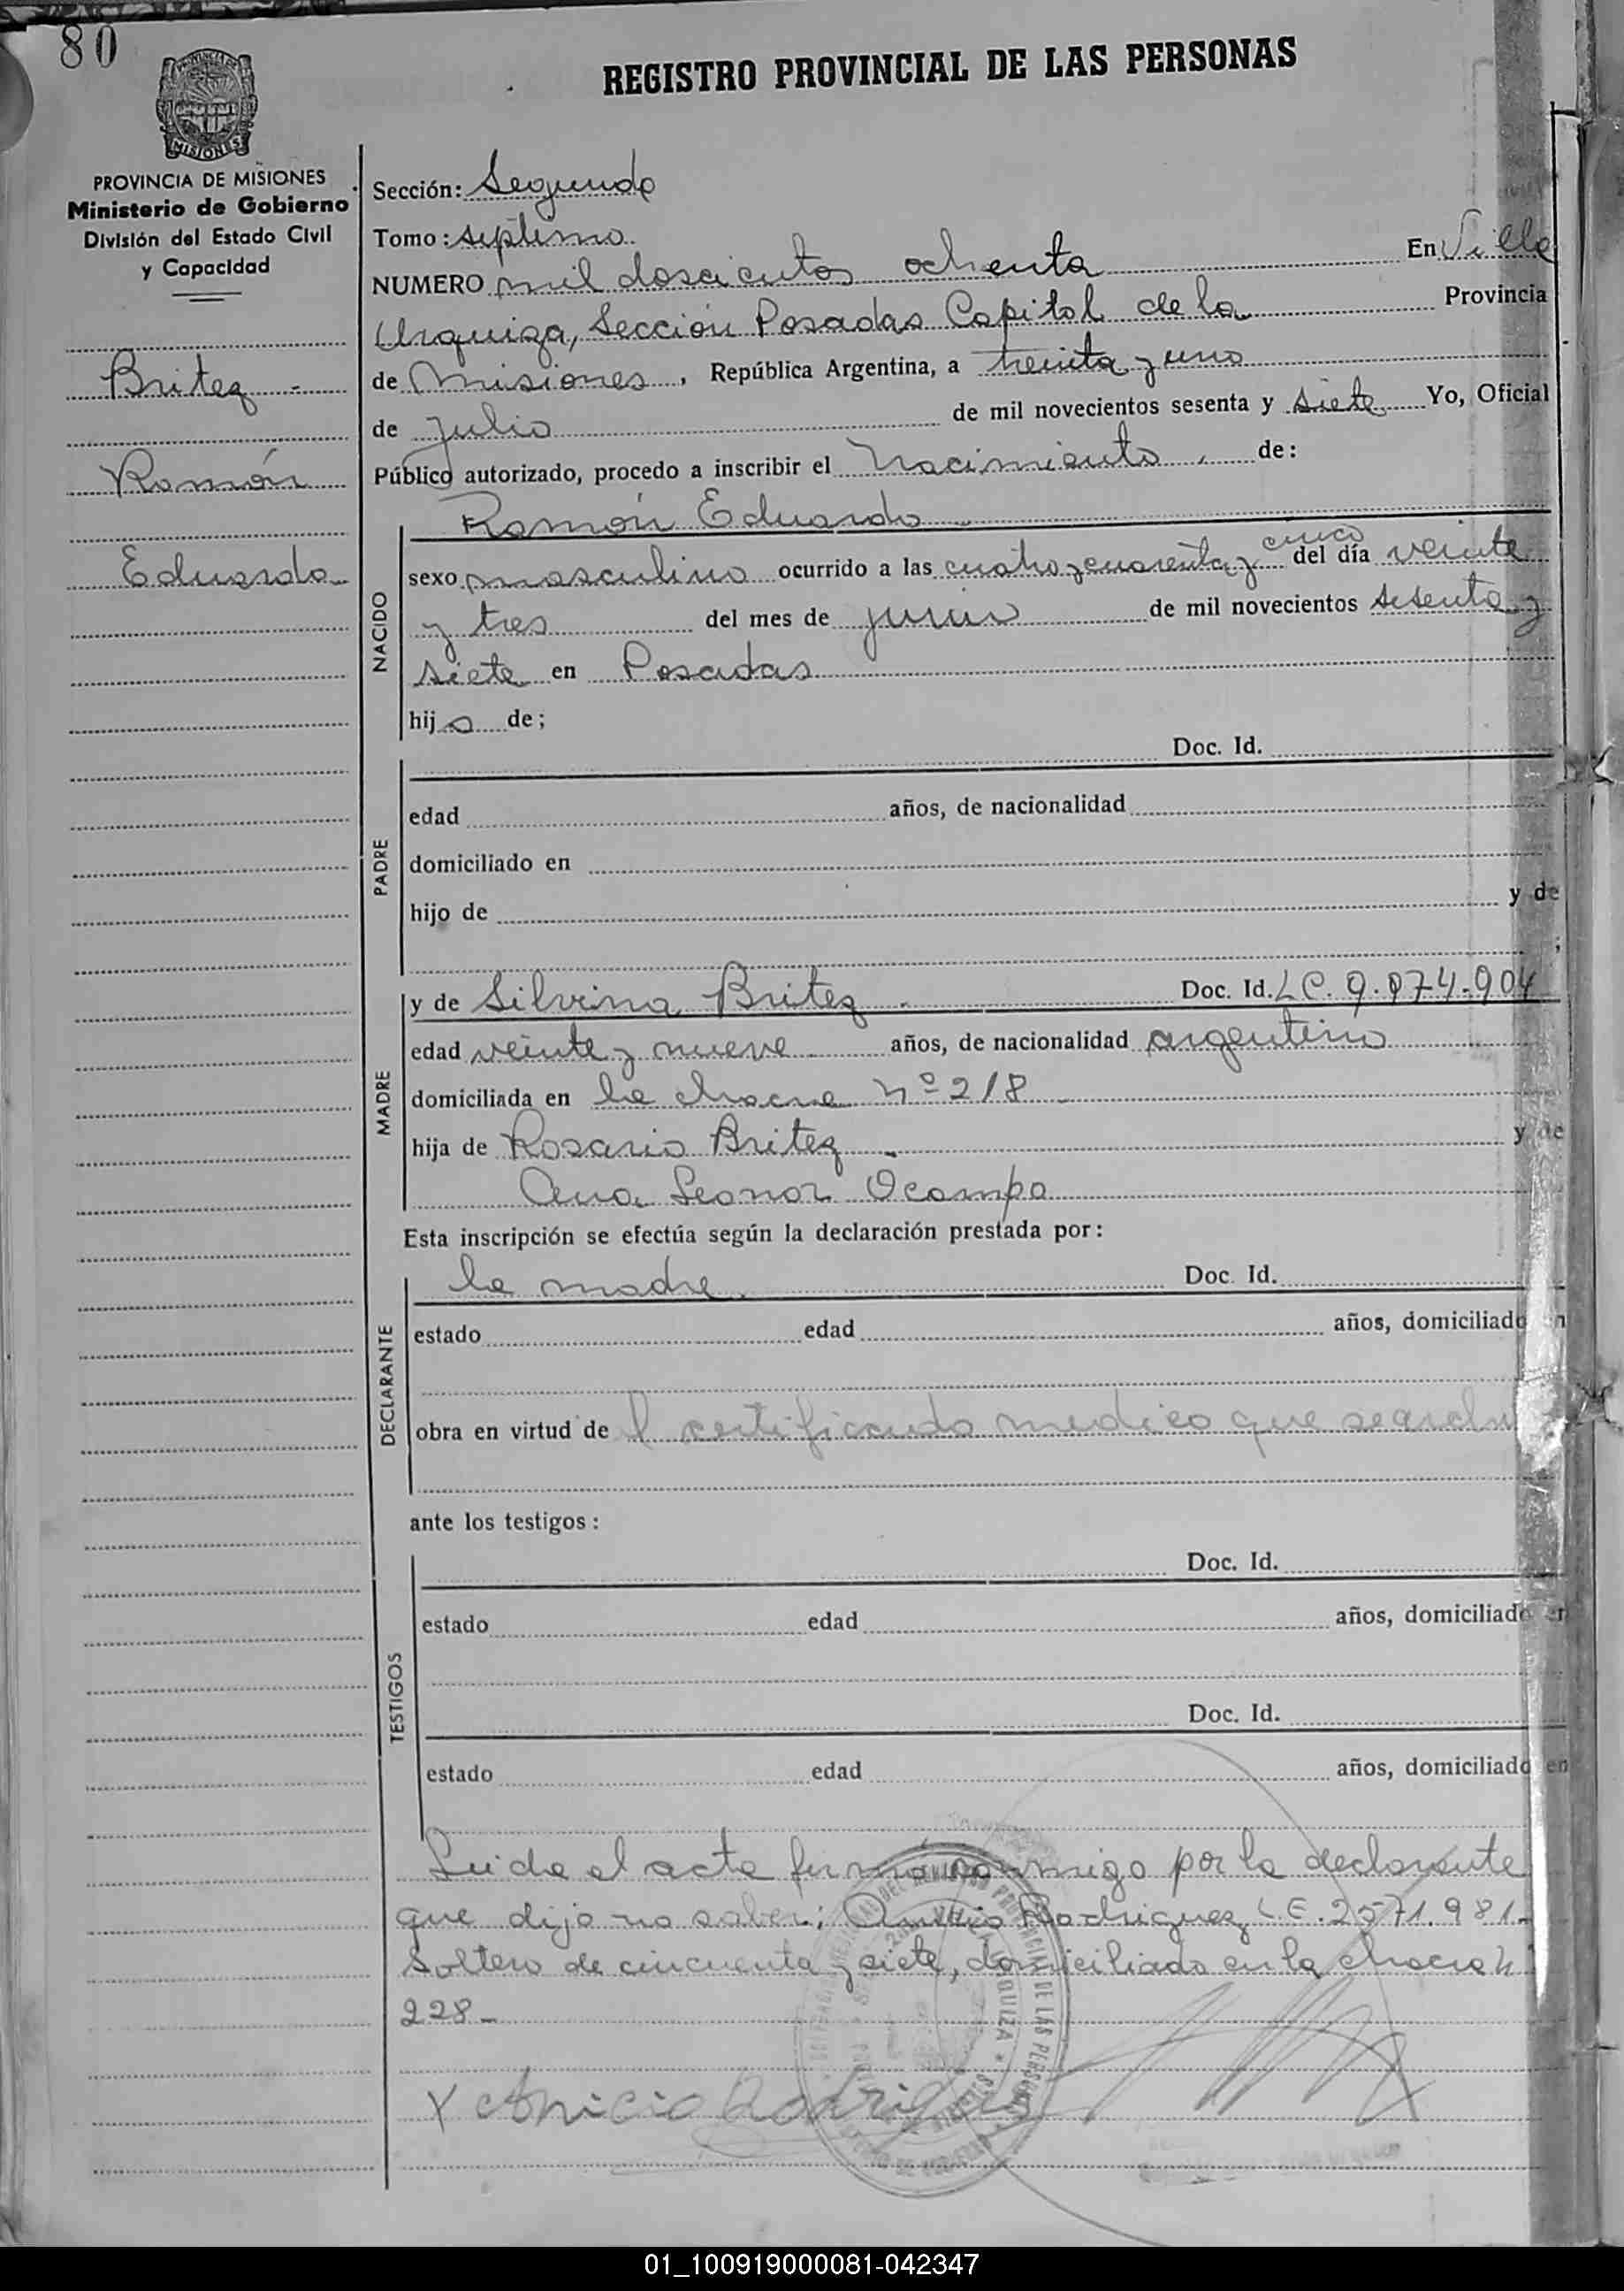 80
REGISTRO PROVINCIAL DE LAS PERSONAS
MISIONES
PROVINCIA DE MISIONES
Ministerio de Gobierno
División del Estado Civil
y Capacidad
Britez
Ramón
Eduardo
Sección: Segunda
Tomo: septimo
NUMERO mil doscientos ochenta En Villa
Urquiza, Sección Posadas Capital de la Provincia
de Misiones, República Argentina, a treinta y uno
de julio de mil novecientos sesenta y siete Yo, Oficial
Público autorizado, procedo a inscribir el nacimiento de:
NACIDO
Ramón Eduardo
sexo masculino ocurrido a las cuatro y cuarenta y cinco del día veinte
y tres del mes de junio de mil novecientos sesenta y
siete en Posadas
hijo de;
PADRE
Doc. Id.
edad años, de nacionalidad
domiciliado en
hijo de y de
;
MADRE
y de Silvina Britez Doc. Id. LC. 9.874.904
edad veinte y nueve años, de nacionalidad argentina
domiciliada en la chacra Nº 218
hija de Rosario Britez y de
Ana Leonor Ocampo
Esta inscripción se efectúa según la declaración prestada por:
DECLARANTE
la madre. Doc. Id.
estado edad años, domiciliado en
obra en virtud de l certificado medico que se
ante los testigos:
TESTIGOS
Doc. Id.
estado edad años, domiciliado en
Doc. Id.
estado edad años, domiciliado en
Leida el acta firma conmigo por la declarante
que dijo no saber; Rodriguez L.E. 2571.981-
Soltero de cincuenta y siete, domiciliado en la chacra N
228-
X Anicio Rodrigues
01_100919000081-042347